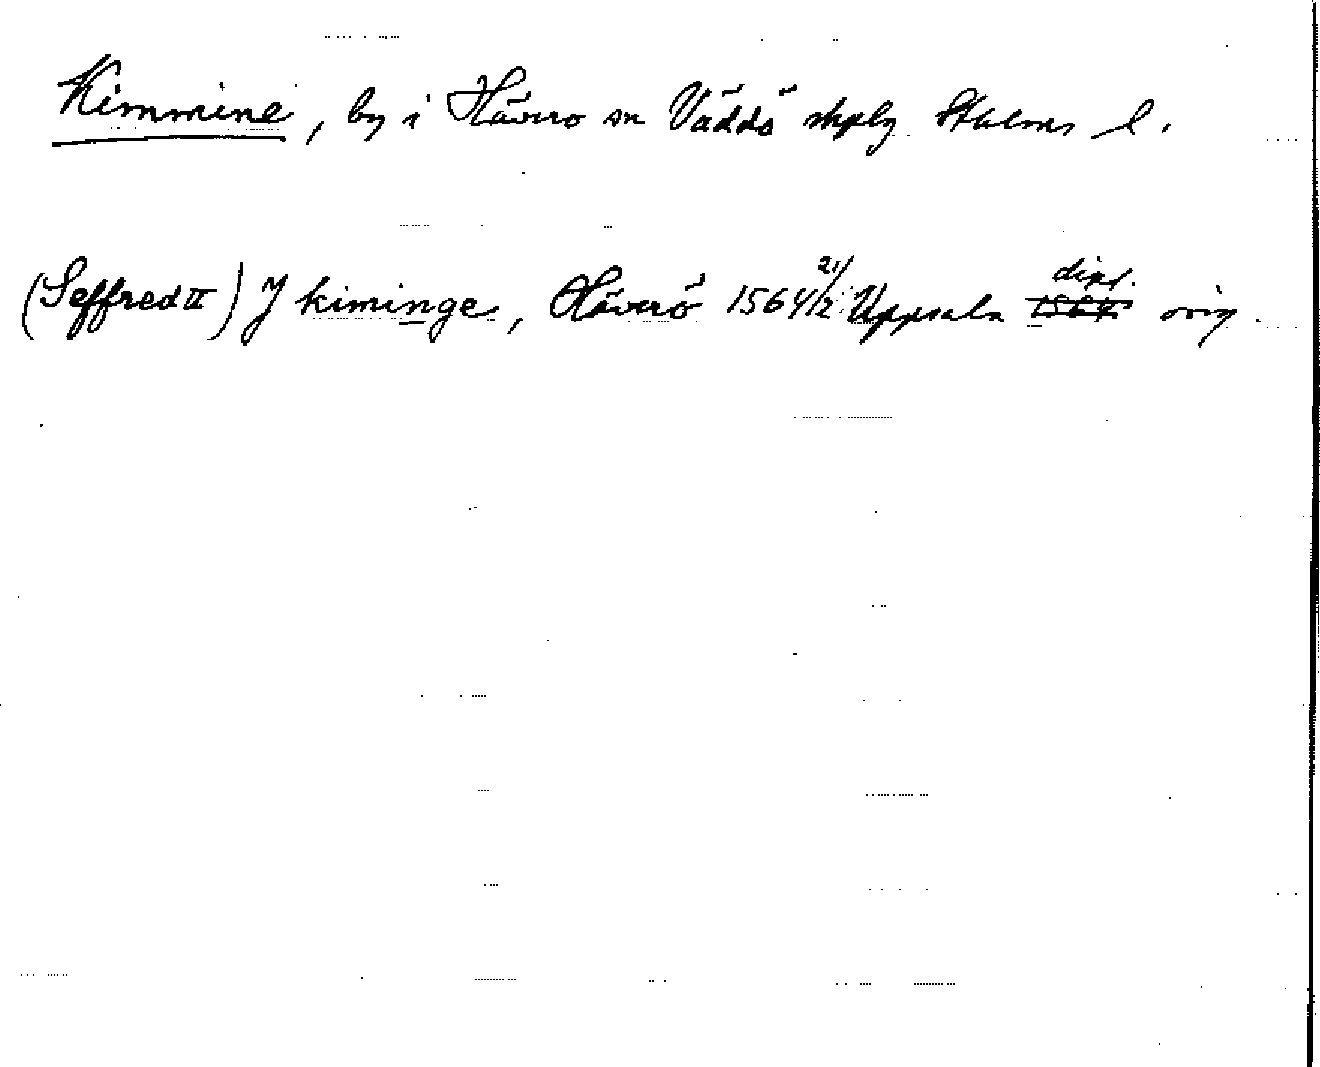 Kimmine, by i Hävero sn Väddö skplg Sthlms l.
(Seffred II) J kiminge, Häverö 1564 21/12 Uppsala dipl. 1564 orig.